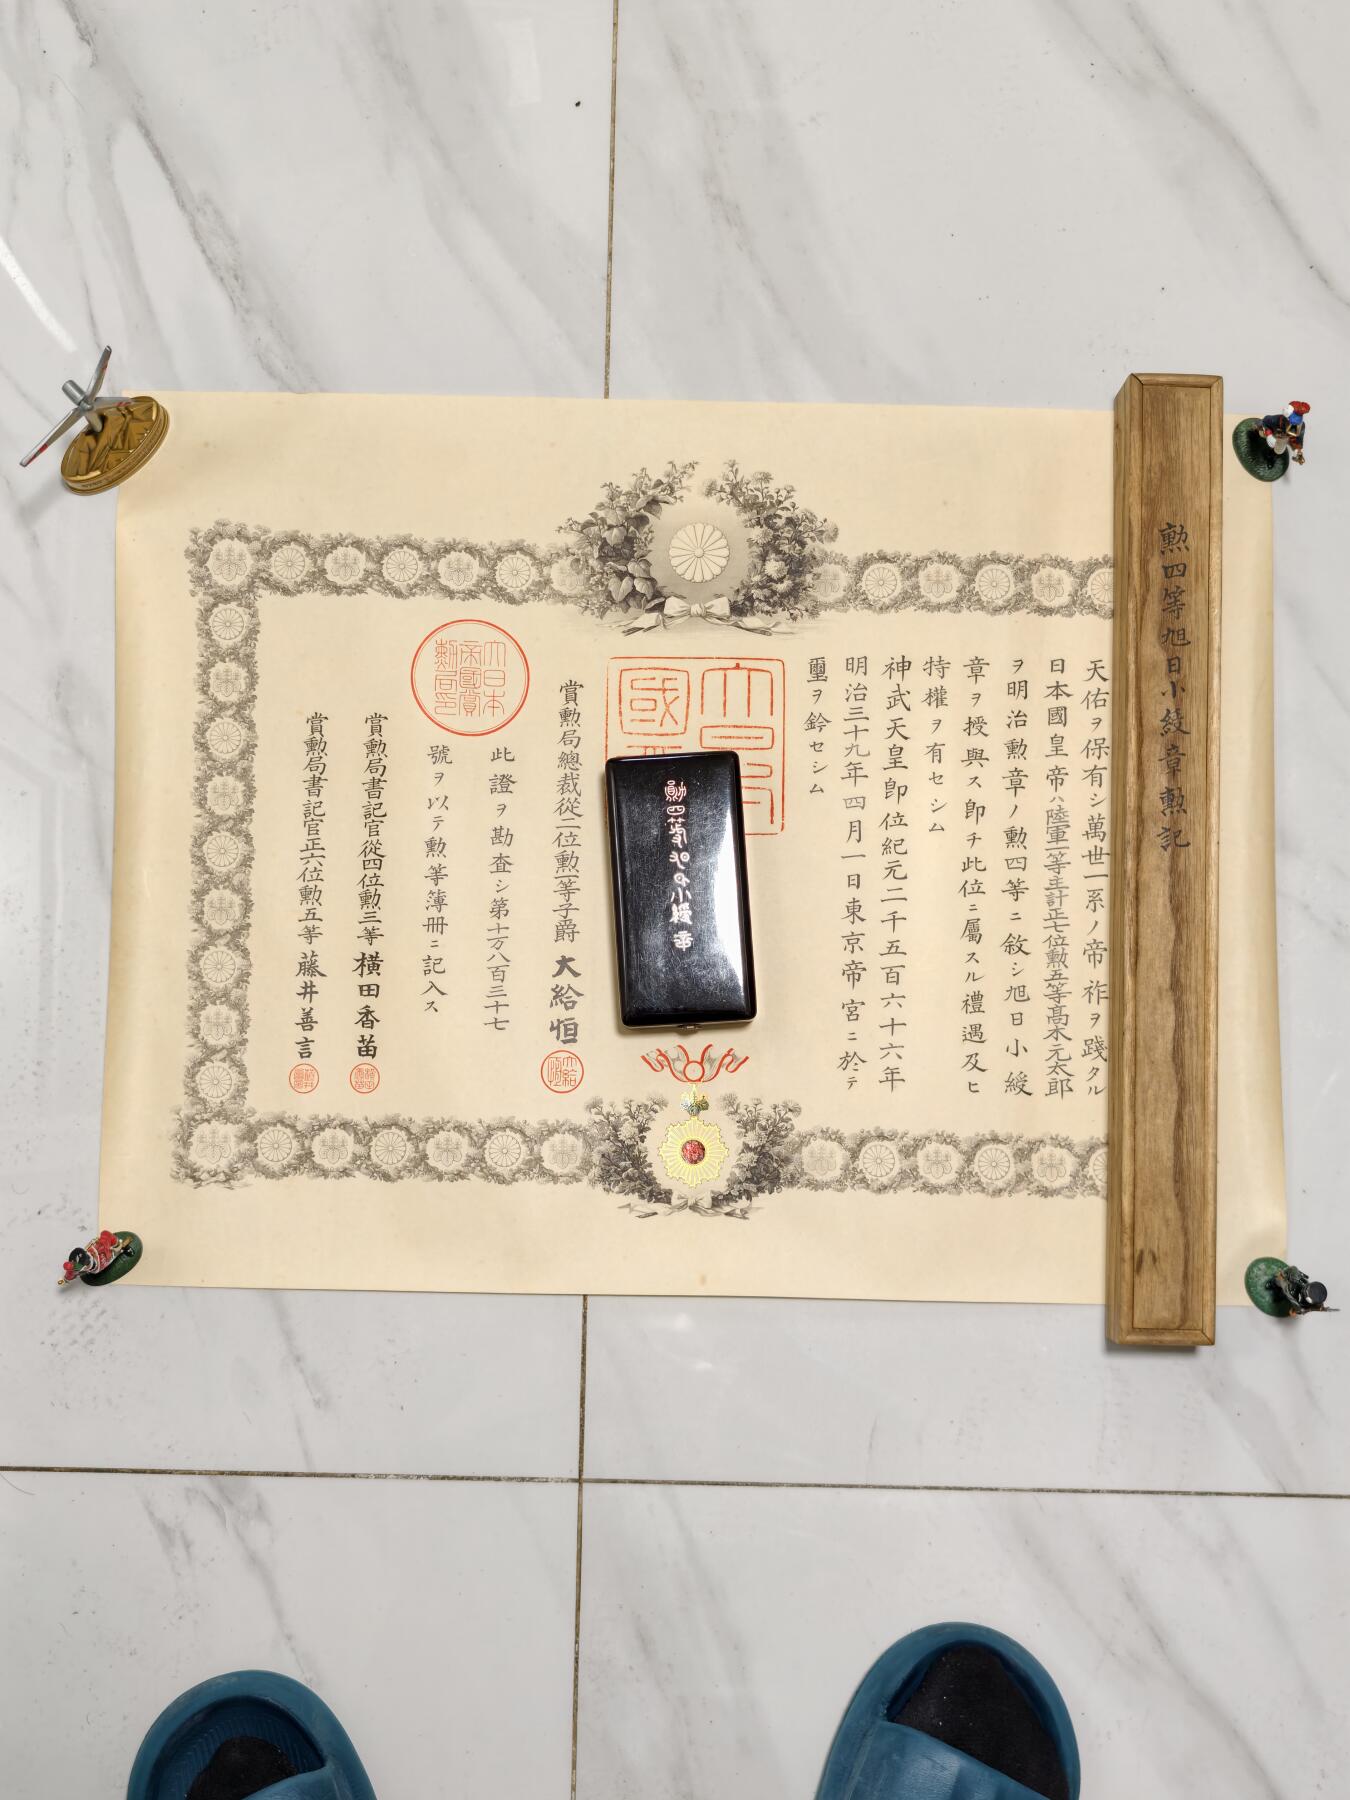 勲四等旭日小綬章勲記
天佑ヲ保有シ萬世一系ノ帝祚ヲ踐タル
日本國皇帝ハ陸軍一等主計正七位勲五等髙木元太郎
ヲ明治勲章ノ勲四等ニ敘シ旭日小綬
章ヲ授與ス即チ此位ニ屬スル禮遇及ヒ
特權ヲ有セシム
神武天皇即位紀元二千五百六十六年
明治三十九年四月一日東京帝宮ニ於テ
璽ヲ鈐セシム
大
國
勲四等旭日小綬章
賞勲局總裁從二位勲一等子爵大給恒
大給恒
此證ヲ勘査シ第十万八百三十七
號ヲ以テ勲等簿冊ニ記入ス
大日本帝國賞勲局印
賞勲局書記官從四位勲三等橫田香苗
賞勲局書記官正六位勲五等藤井善言